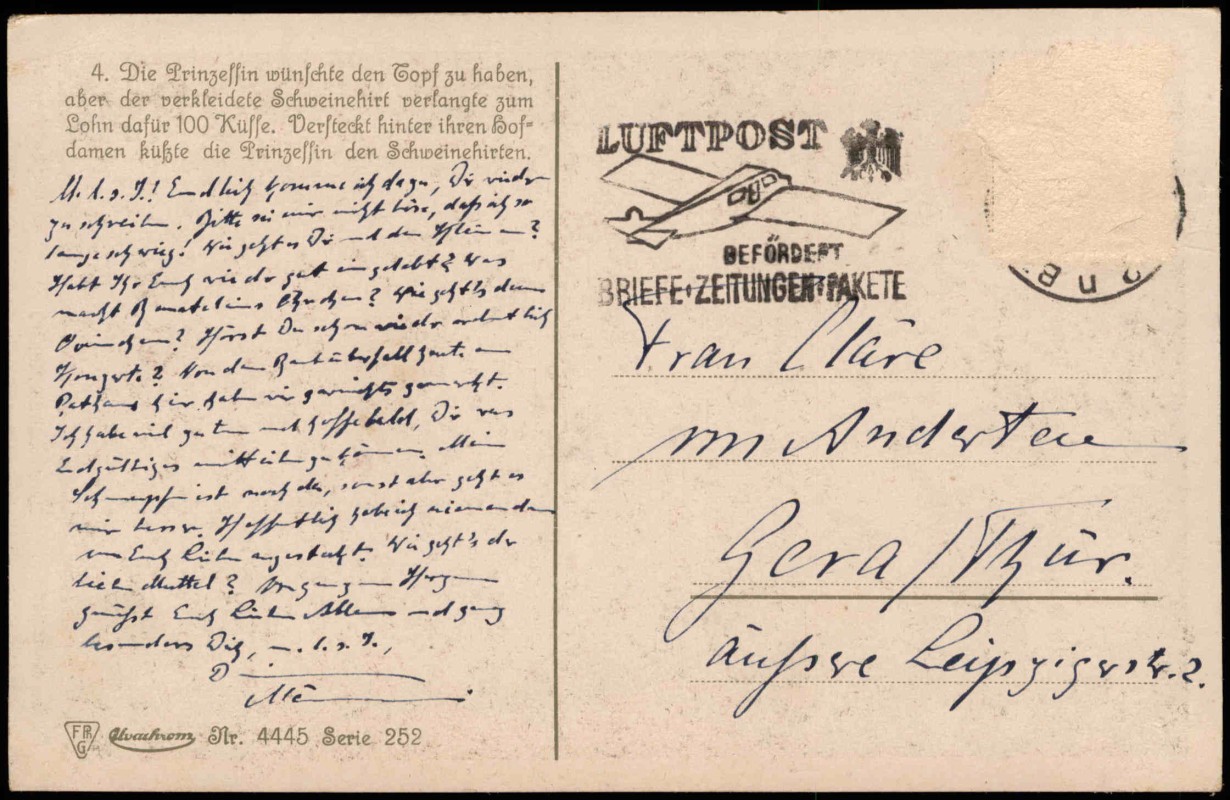 4. Die Prinzessin wünschte den Topf zu haben,
aber der verkleidete Schweinehirt verlangte zum
Lohn dafür 100 Küsse. Versteckt hinter ihren Hof-
damen küßte die Prinzessin den Schweinehirten.
M. l. s. J.! Endlich komme ich dazu, Dir wieder
zu schreiben. Bitte sei mir nicht böse, daß ich so
lange schwieg! Wie geht es Dir und den Kleinen?
Habt Ihr Euch wieder gut eingelebt? Was
macht
Hörst Du schon wieder ordentlich
Konzerte? Von dem Raubüberfall heute am
Rathaus hier haben wir garnichts gemerkt.
Ich habe viel zu tun und hoffe bald, Dir was
Endgültiges mitteilen zu können. Mein
Schnupfen ist noch da, sonst aber geht es
mir besser. Hoffentlich habe ich niemanden
von Euch Lieben angesteckt. Wie geht's der
lieben Muttel? Von ganzem Herzen
grüßt Euch Lieben Allen und ganz
besonders Dich, m. l. s. J.,
D
FPG Uvachrom Nr. 4445 Serie 252
LUFTPOST
BEFÖRDERT
BRIEFE·ZEITUNGEN·PAKETE
Frau Cläre
von Anderten
Gera/Thür.
äußere Leipzigerstr. 2.